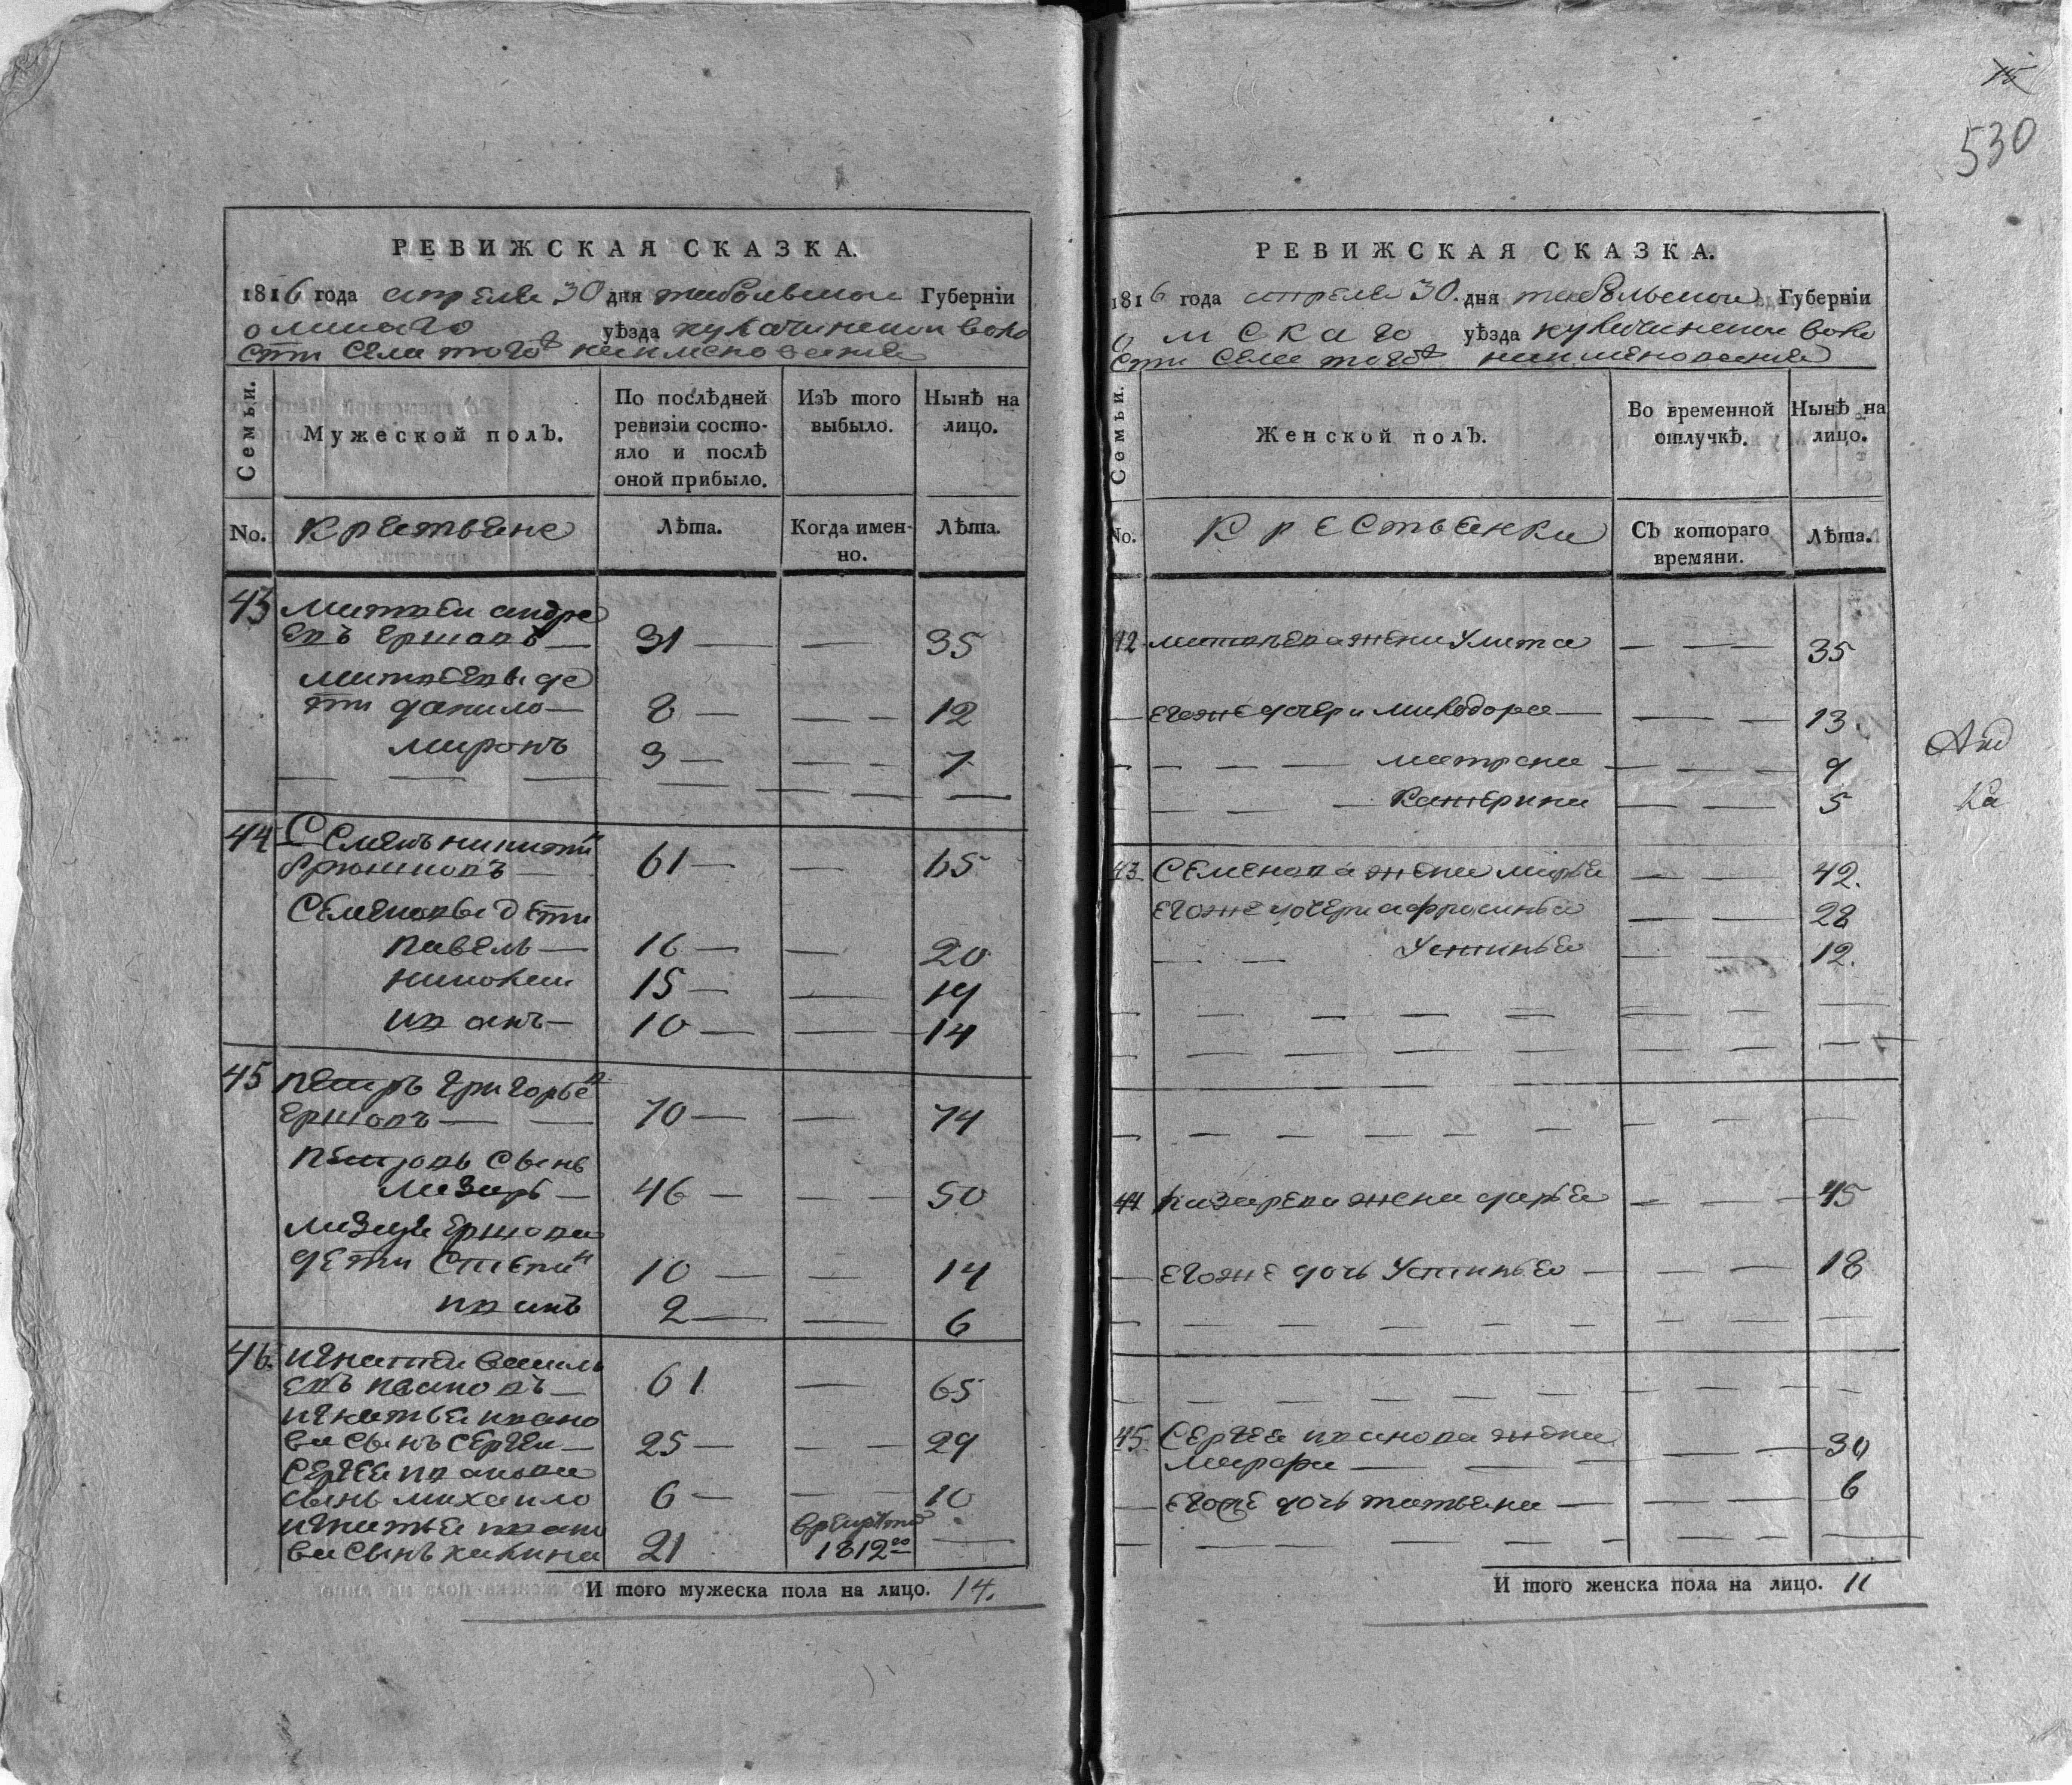 РЕВИЖСКАЯ СКАЗКА.
1816 года апреля 30 дня тобольской Губерніи
омскаго уѣзда кулачинской воло
сти села того ж наименования
Семьи.
Мужеской полЪ.
По послѣдней ревизіи состояло и послѣ оной прибыло.
ИзЪ того выбыло.
Нынѣ на лицо.
No. крестьяне
Лѣта.
Когда именно.
Лѣта.
43 матвеи андре
евъ ершовъ 31 35
матвеевы де
ти данило 8 12
миронъ 3 7
44 Семенъ никитин
61 65
Семеновы дети
павелъ 16 20
николаи 15 19
иванъ 10 14
45 петръ григорьев
ершовъ 70 74
петровъ сынъ
лазарь 46 50
лазаря ершова
дети степан 10 14
иванъ 2 6
46. игнатеи василь
евъ ивановъ 61 65
игнатья ивано
ва сынъ сергеи 25 29
сергея иванова
сынъ михаило 6 10
игнатья ивано
ва сынъ калина 21 в рекруты 1812го
И того мужеска пола на лицо. 14.
15
530
РЕВИЖСКАЯ СКАЗКА.
1816 года апреля 30. дня тобольской Губерніи
омскаго уѣзда кулачинской воло
сти села того ж наименования
Семьи.
Женской полЪ.
Во временной отлучкѣ.
Нынѣ на лицо.
No. крестьянки
СЪ котораго времяни.
Лѣта.
42 матвеева жена улита 35
егоже дочери миподора 13
матрена 9
катерина 5
43 семенова жена марья 42.
егоже дочери афросинья 28
устинья 12.
44 лазарева жена дарья 45
егоже дочь устинья 18
45 сергея иванова жена
марфа 30
егоже дочь татьяна 6
И того женска пола на лицо. 11